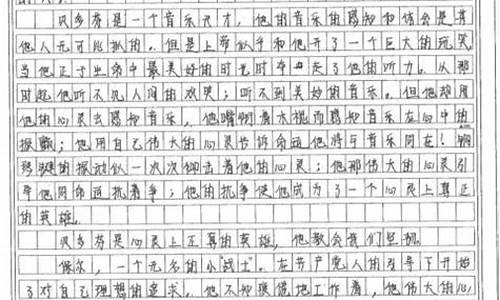 贝多芬是一个音乐天才，他的音乐的感知和体会是常
他人无可比拟的。但是上帝似乎和他开了一个巨大的玩笑
当他正于生命中最美好的时光时夺走了他的听力。从那
时起他听不见人间的欢笑；听不到美妙的音乐。但他却用
他的心灵去感知音乐，他嘴啣着木棍而感知音乐在心中的
振颤；他用自己伟大的心灵告诉命运他将与音乐同在！钢
琴键的振动似一次次叩击着他的心灵；他那伟大的心灵引
导他同命运抗着争；他的抗争使他成为了一个心灵上真正
的英雄。
贝多芬是心灵上正真的英雄，他教会我们坚韧。
保尔，一个无名的小"战士"。在共产党人的引导下开始
了对自己理想的追求。他不知疲倦地工作着，他伟大的心